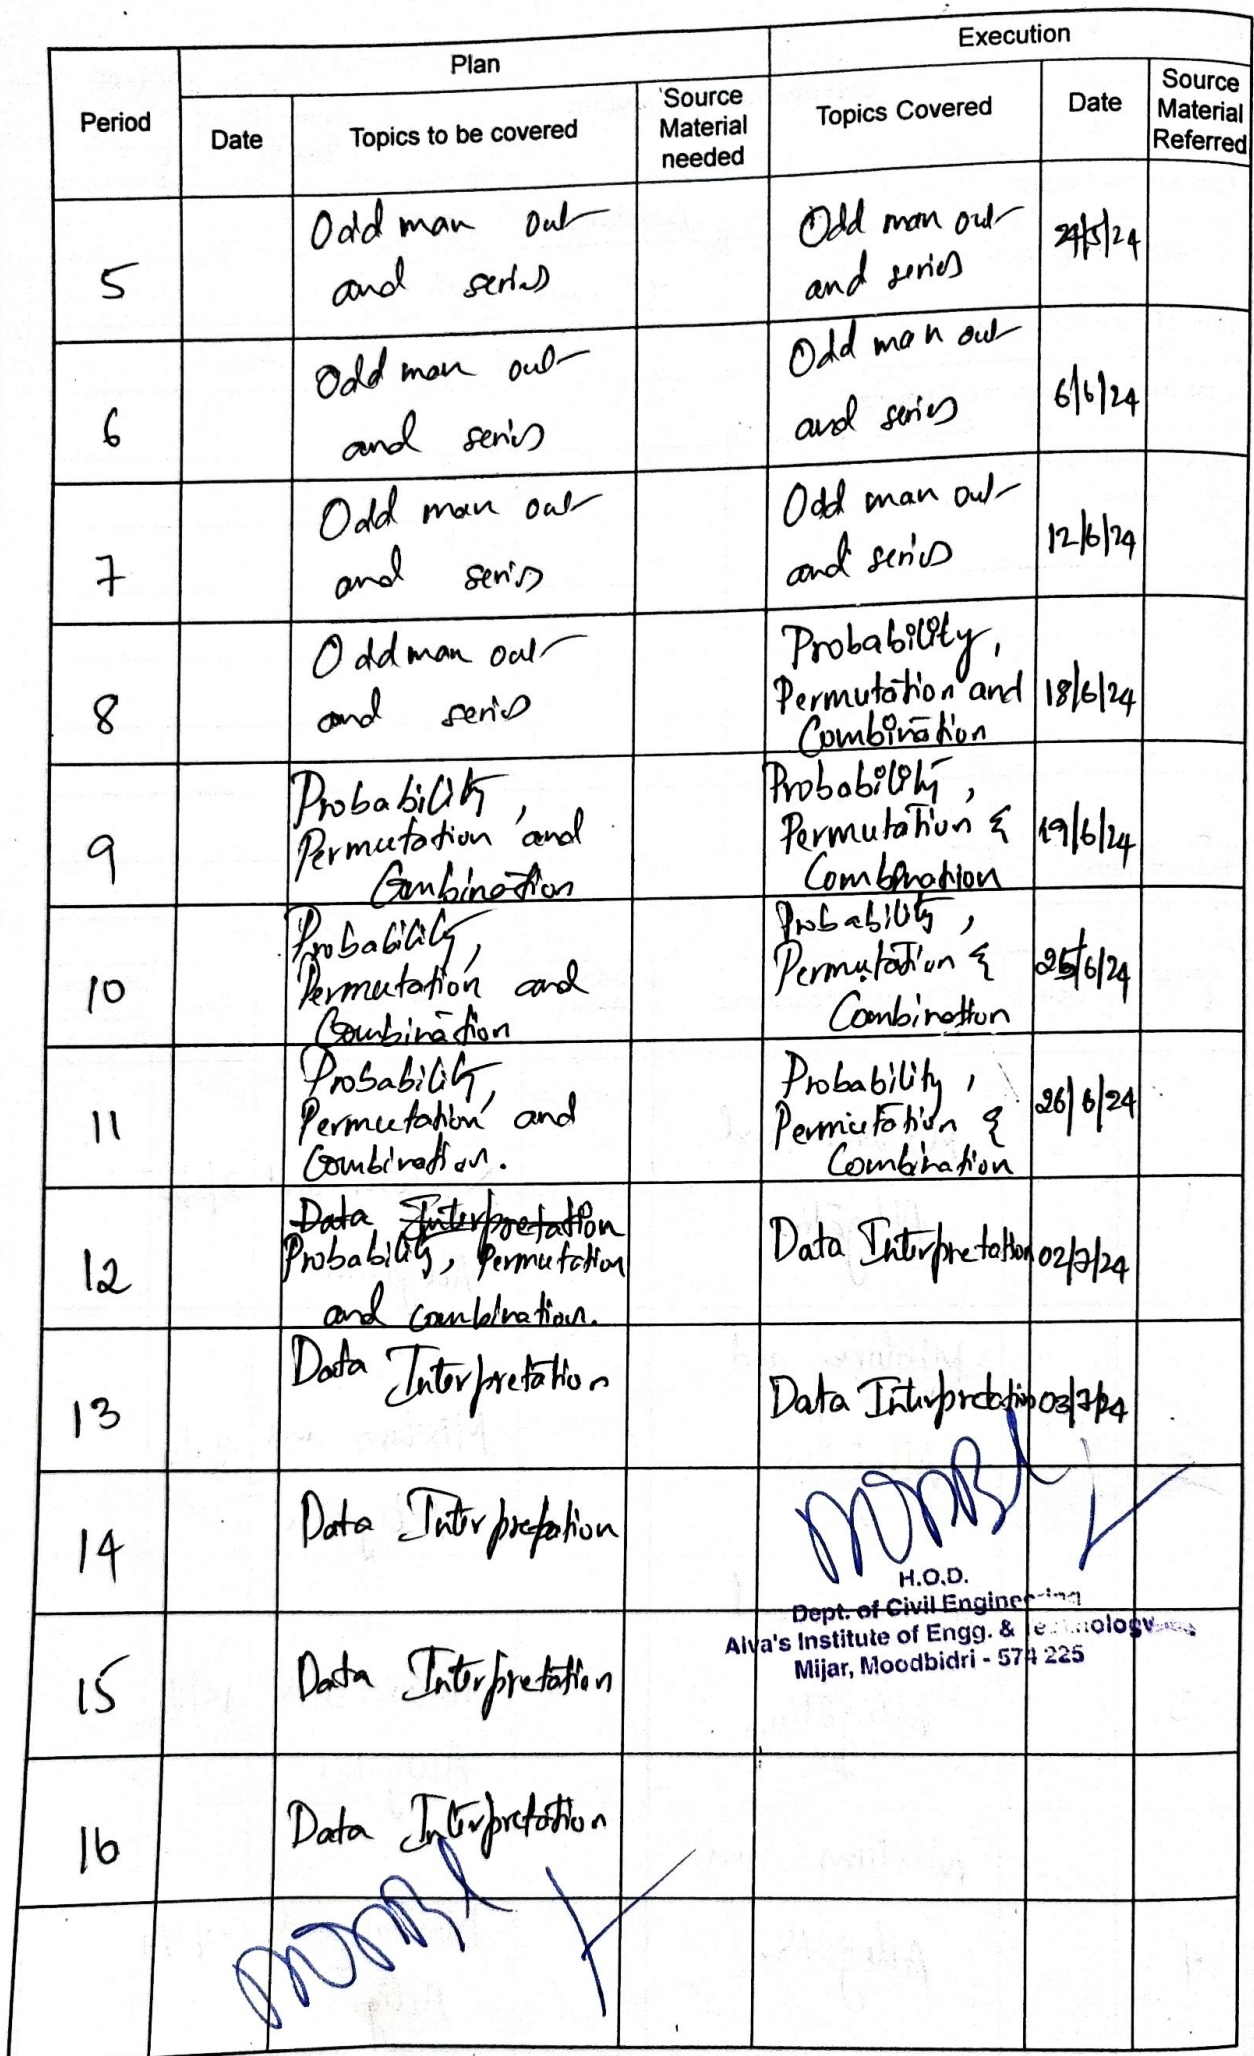 Period
Plan
Execution
Date
Topics to be covered
Source
Material
needed
Topics Covered
Date
Source
Material
Referred
5
Odd man out
and series
Odd man out
and series
24/5/24
6
Odd man out
and series
Odd man out
and series
6/6/24
7
Odd man out
and series
Odd man out
and series
12/6/24
8
Odd man out
and series
Probability,
Permutation and
Combination
18/6/24
9
Probability,
Permutation and
Combination
Probability,
Permutation &
Combination
19/6/24
10
Probability,
Permutation and
Combination
Probability,
Permutation &
Combination
25/6/24
11
Probability,
Permutation and
Combination.
Probability,
Permutation &
Combination
26/6/24
12
Data Interpretation
Probability, Permutation
and combination.
Data Interpretation
02/7/24
13
Data Interpretation
Data Interpretation
03/7/24
14
Data Interpretation
H.O.D.
Dept. of Civil Engineering
Alva's Institute of Engg. & Technology
Mijar, Moodbidri - 574 225
15
Data Interpretation
16
Data Interpretation